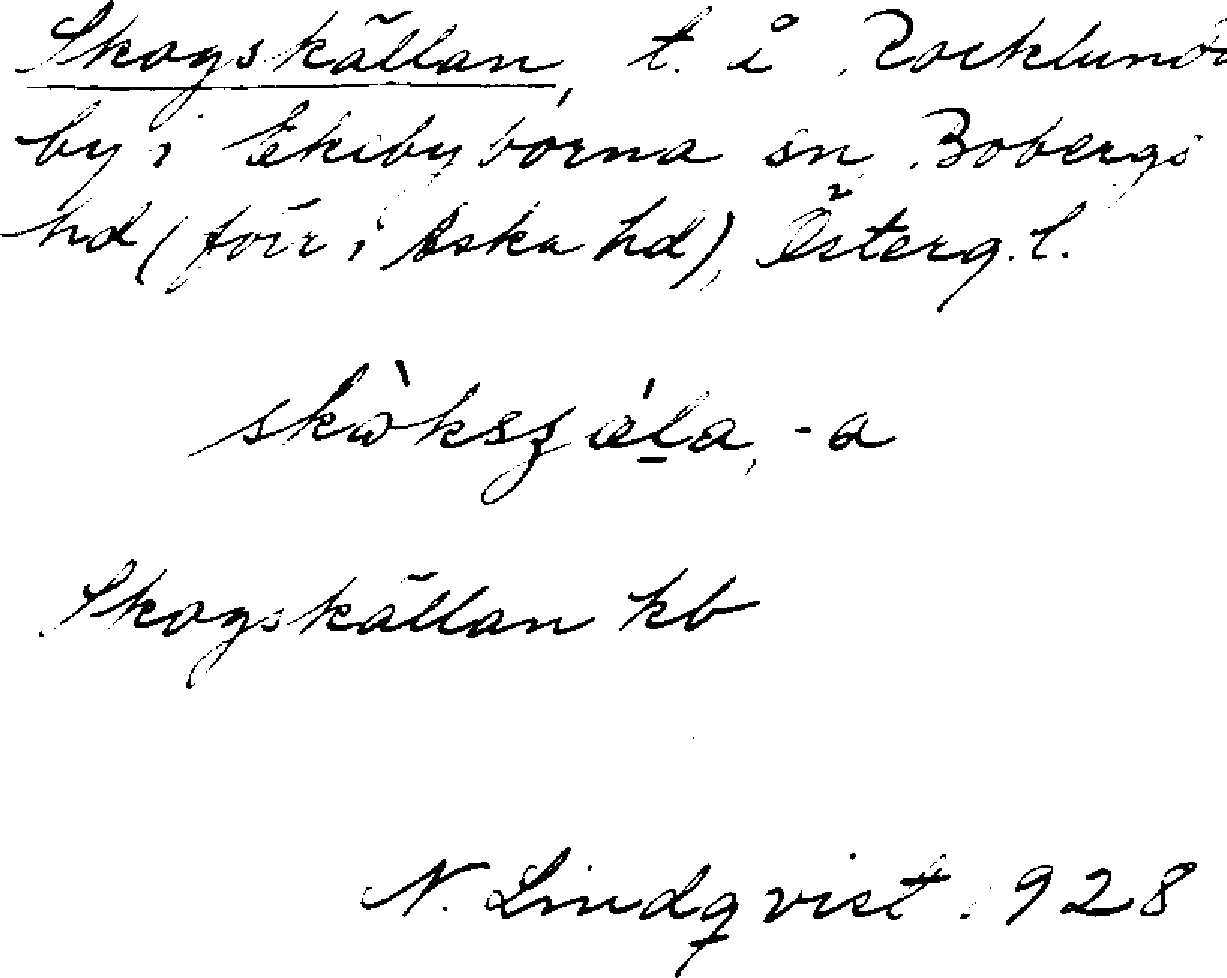 Skogskällan, t. å Rocklunda
by i Ekebyborna sn, Bobergs
hd (förr i Aska hd), Österg. l.
skòkszǽla, -a
Skogskällan kb
N. Lindqvist 1928